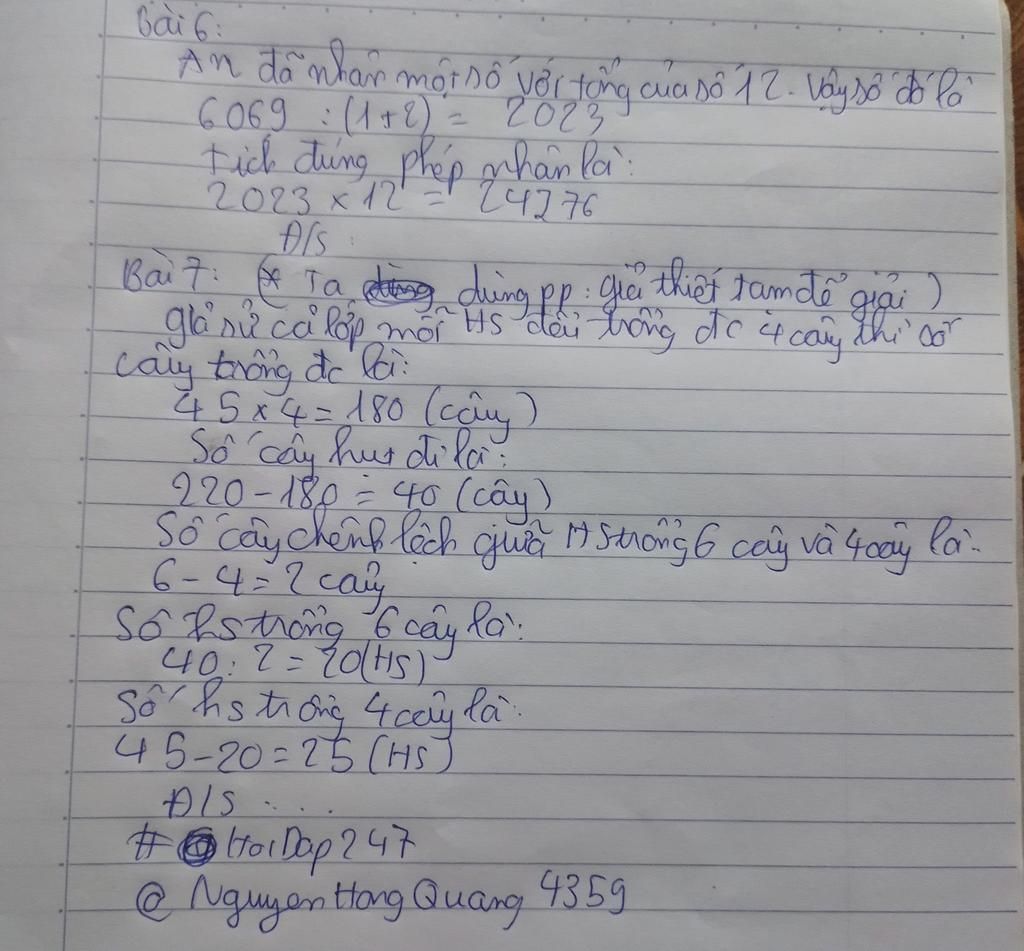 Bài 6:
An đã nhân một số với tổng của số 12. Vậy số đó là
6069 : (1+2) = 2023
tích đúng phép nhân là:
2023 x 12 = 24276
Đ/S :
Bài 7: (* Ta dùng pp: giả thiết tạm để giải)
giả sử cả lớp mỗi HS đều trồng đc 4 cây thì số
cây trồng đc là:
45 x 4 = 180 (cây)
Số cây hụt đi là:
220 - 180 = 40 (cây)
Số cây chênh lệch giữa HS trồng 6 cây và 4 cây là:
6 - 4 = 2 cây
Số hs trồng 6 cây là:
40 : 2 = 20 (HS)
Số hs trồng 4 cây là:
45 - 20 = 25 (HS)
Đ/S ....
# HoiDap247
@ NguyenHongQuang4359